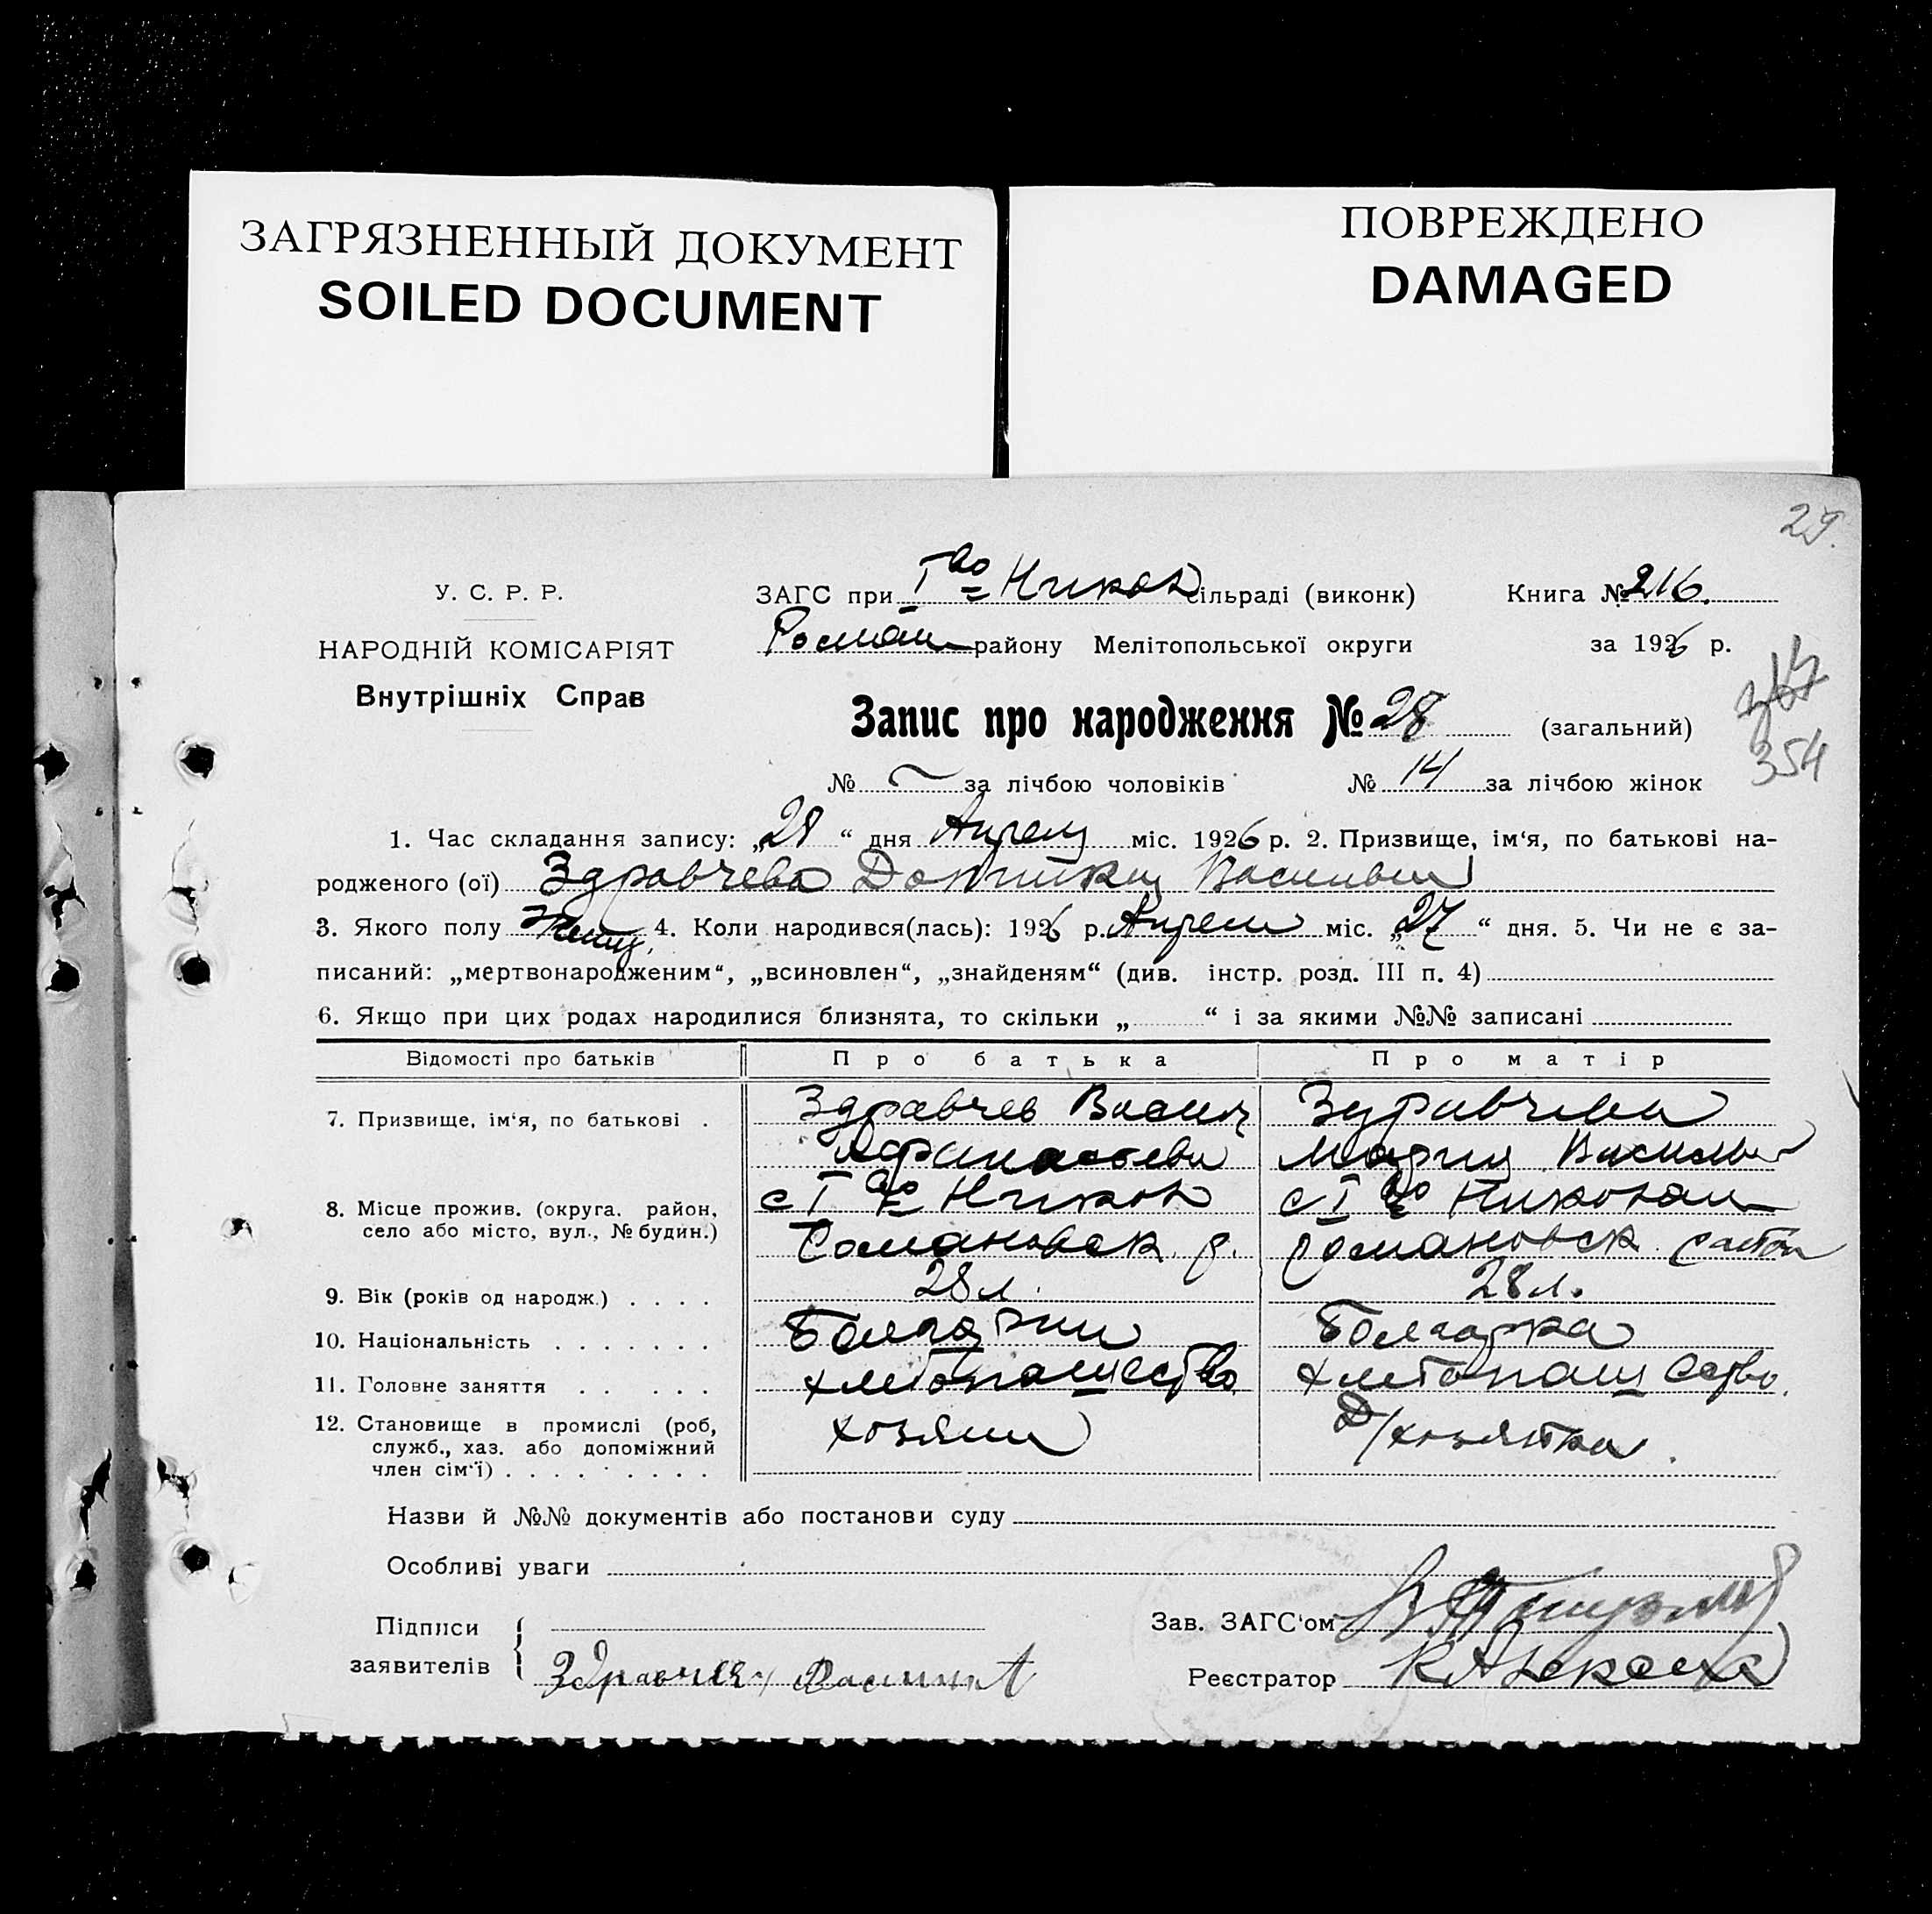 ЗАГРЯЗНЕННЫЙ ДОКУМЕНТ
SOILED DOCUMENT
ПОВРЕЖДЕНО
DAMAGED
29.
У. С. Р. Р.
НАРОДНІЙ КОМІСАРІЯТ
Внутрішніх Справ
ЗАГС при I во Никол сільраді (виконк) Книга № 216.
Роман району Мелітопольської округи за 1926 р.
Запис про народження № 28 (загальний)
354
№ за лічбою чоловіків № 14 за лічбою жінок
1. Час складання запису: „28“ дня Апреля міс. 1926 р. 2. Призвище, ім‘я, по батькові на-
родженого (ої) Здравчева Домникия Васильев
3. Якого полу Женщ. 4. Коли народився(лась): 1926 р. Апреля міс. „27“ дня. 5. Чи не є за-
писаний: „мертвонародженим“, „всиновлен“, „знайденям“ (див. інстр. розд. III п. 4)
6. Якщо при цих родах народилися близнята, то скільки „ “ і за якими №№ записані
Відомості про батьків Про батька Про матір
7. Призвище, ім‘я, по батькові . Здравчев Васил Здравчева
Афанасьев Мария Васильев
8. Місце прожив. (округа, район, с I во Никол с I во Николаи
село або місто, вул., № будин.) Романовск р. Романовск район
9. Вік (років од народж.) . . . . 28 л. 28 л.
10. Національність . . . . . . . Болгарин Болгарка
11. Головне заняття . . . . . хлебопашество хлебопашество.
12. Становище в промислі (роб, хозяин Д/хозяйка.
служб., хаз. або допоміжний
член сім‘ї) . . . . . . . . .
Назви й №№ документів або постанови суду
Особливі уваги
Підписи
заявителів Здравчев Василий
Зав. ЗАГС‘ом
Реєстратор